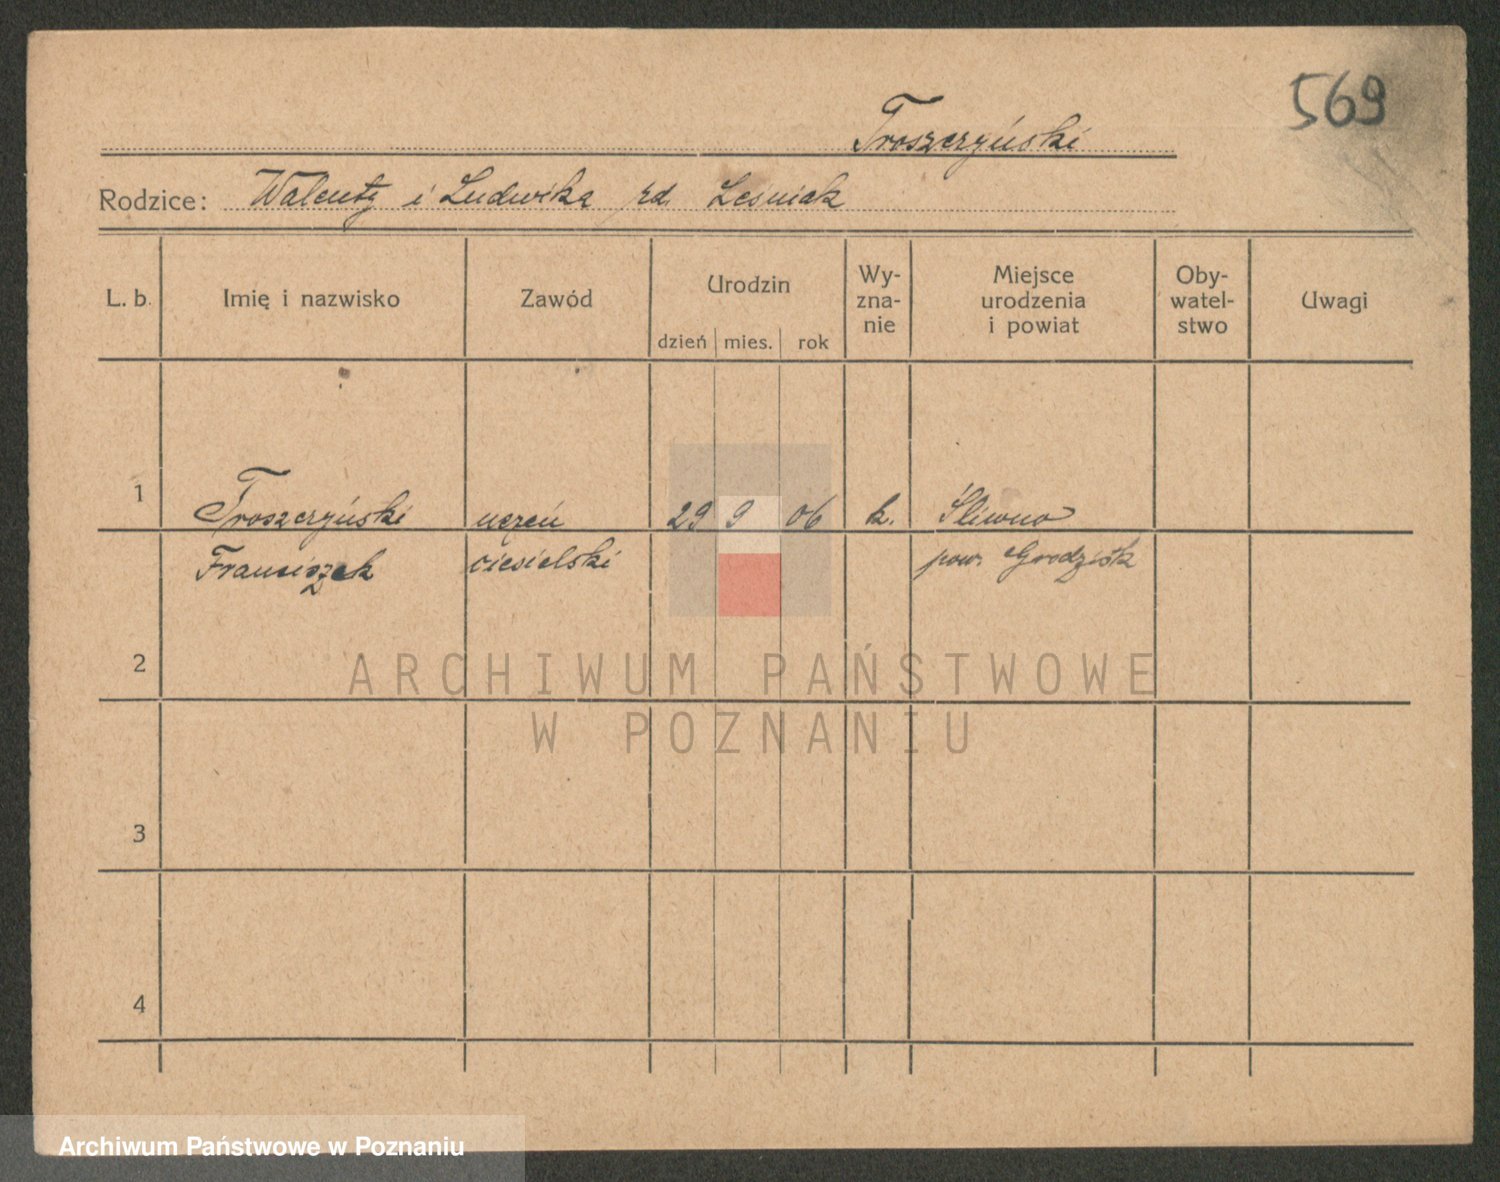 569
Troszczyński
Rodzice: Walenty i Ludwika rd. Leśniak
L. b. Imię i nazwisko Zawód Urodzin dzień mies. rok Wy-zna-nie Miejsce urodzenia i powiat Oby-watel-stwo Uwagi
1 Troszczyński uczeń 29 9 06 k. Śliwno
Franciszek ciesielski pow. Grodzisk
2
3
4
ARCHIWUM PAŃSTWOWE
W POZNANIU
Archiwum Państwowe w Poznaniu